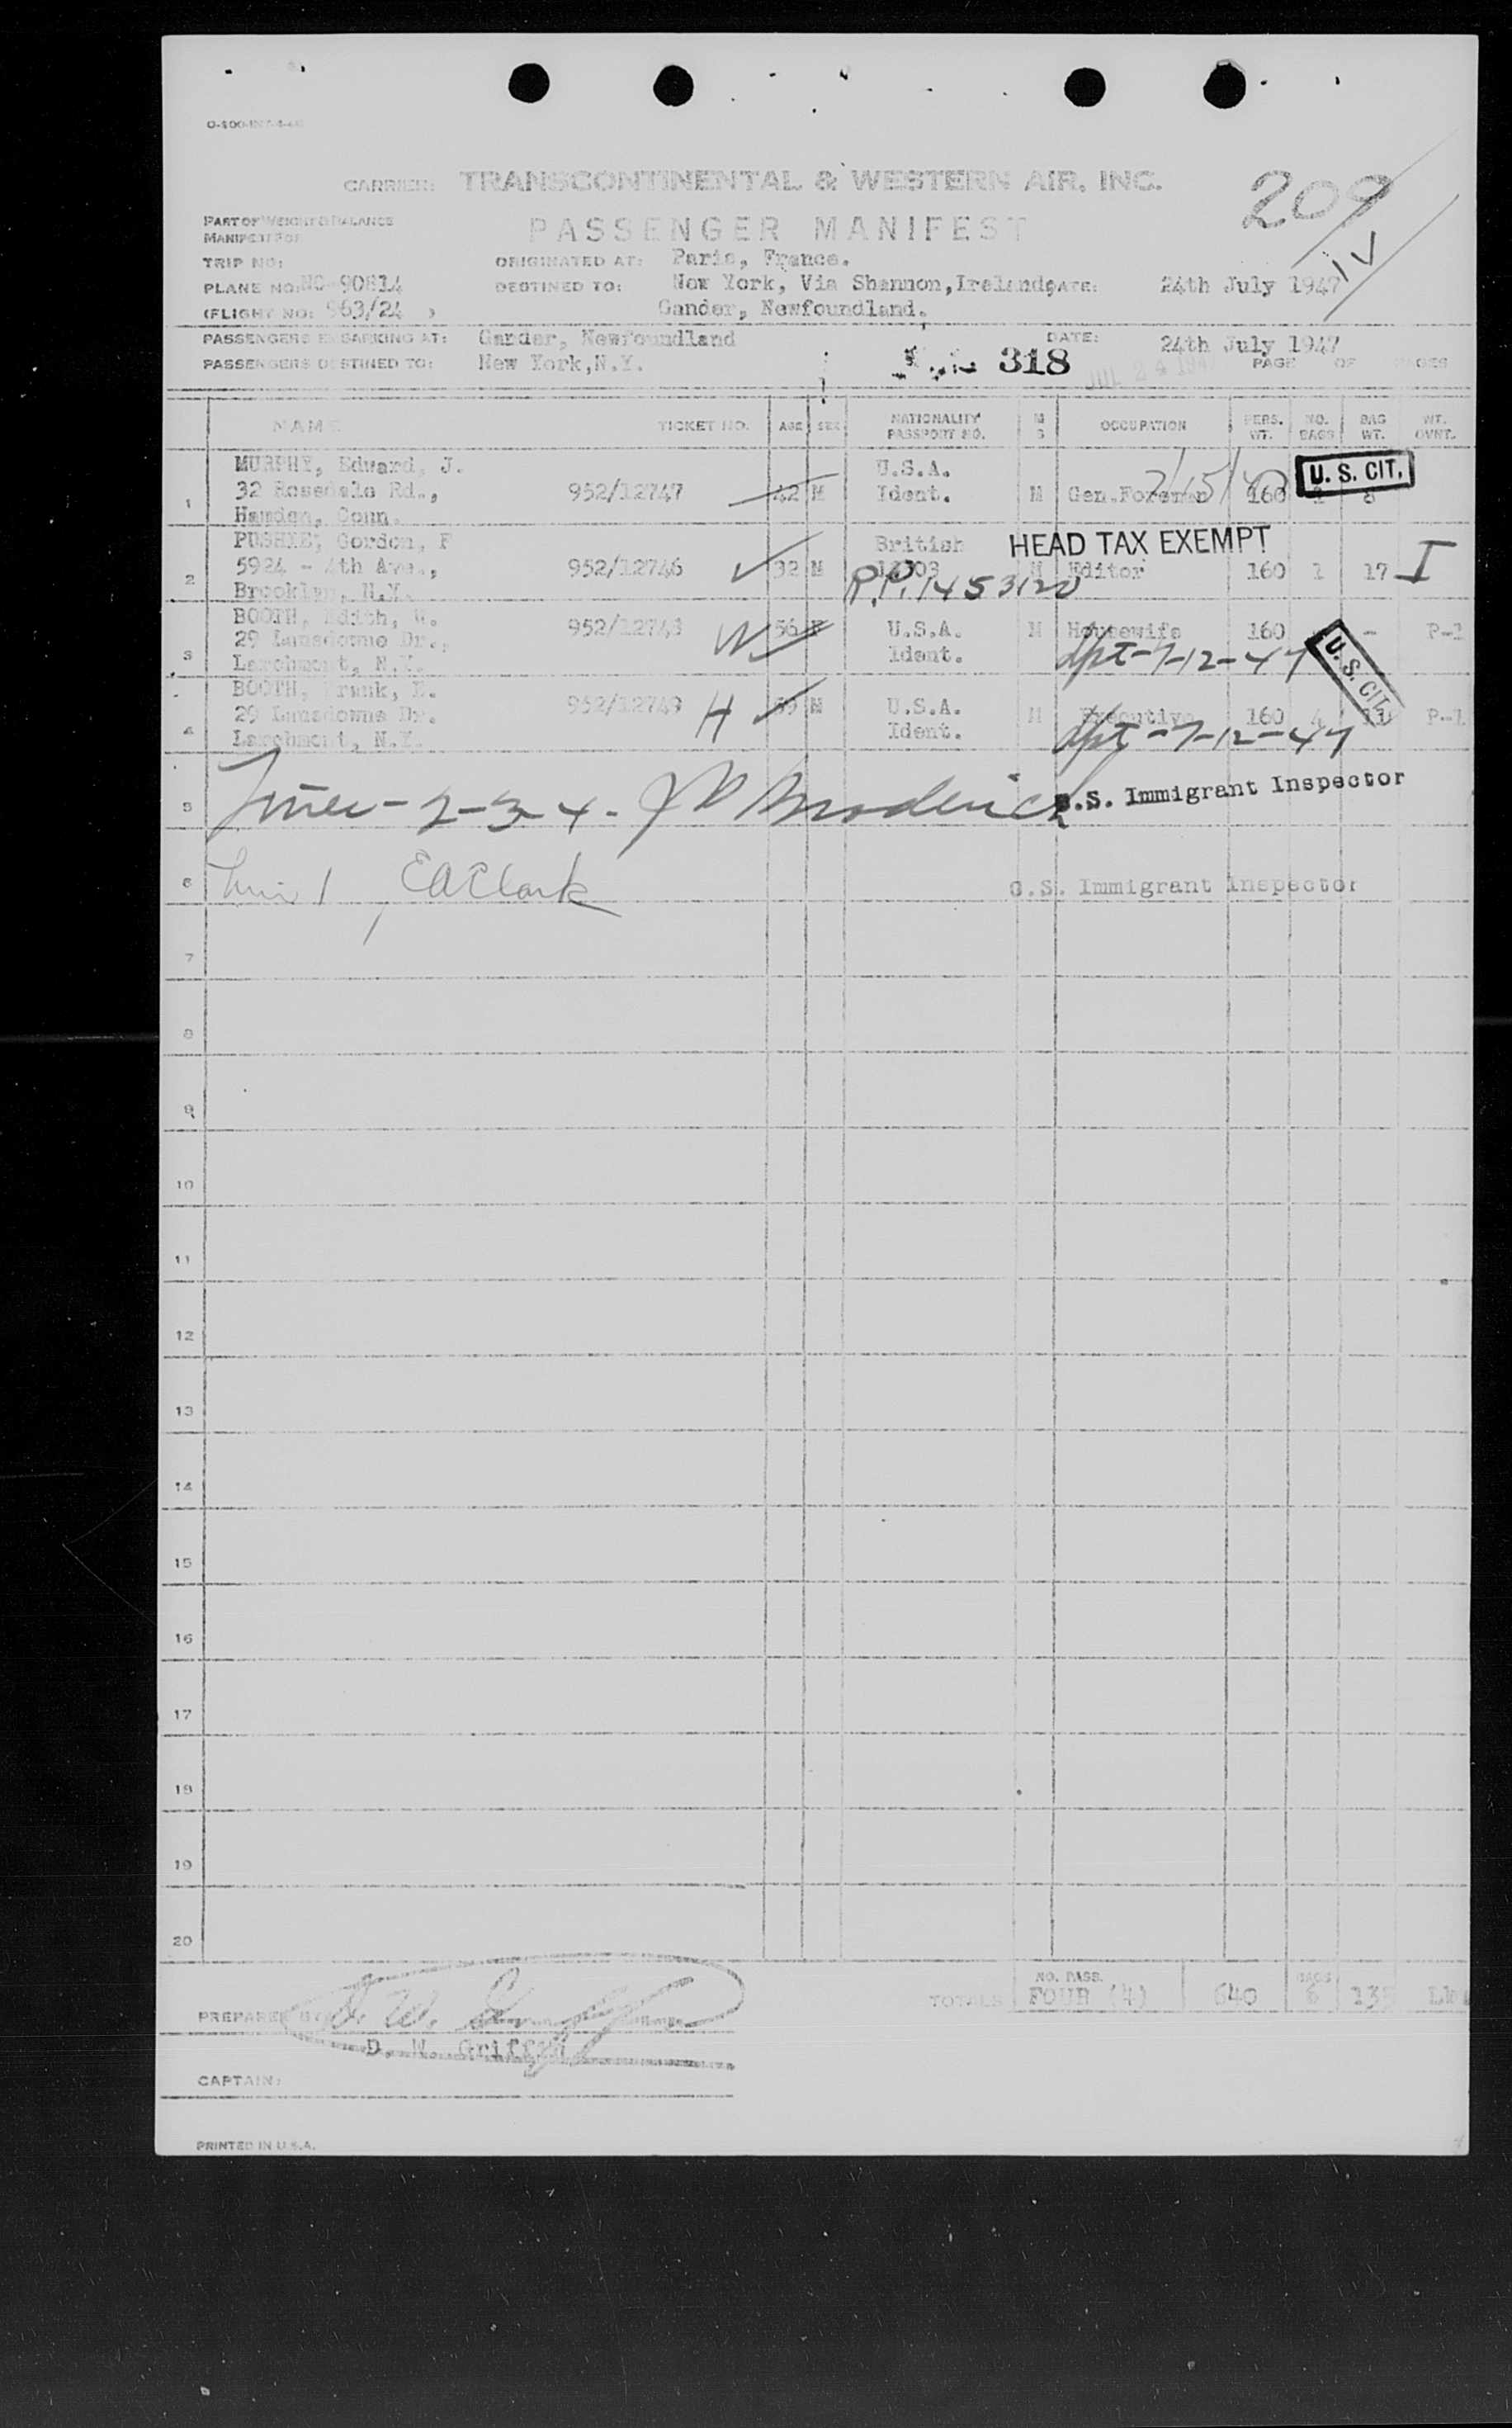 CARRIER: TRANSCONTINENTAL & WESTERN AIR, INC.
209
IV
PART OF WEIGHT & BALANCE
MANIFEST FOR
PASSENGER MANIFEST
TRIP NO:
ORIGINATED AT: Paris, France.
PLANE NO: NC-90814
DESTINED TO: New York, Via Shannon, Ireland, DATE: 24th July 1947
(FLIGHT NO: 963/24 ) Gander, Newfoundland.
PASSENGERS EMBARKING AT: Gander, Newfoundland DATE: 24th July 1947
PASSENGERS DESTINED TO: New York, N.Y. 318 PAGE OF PAGES
NAME TICKET NO. AGE SEX NATIONALITY PASSPORT NO. M S OCCUPATION PERS. WT. NO. BAGS BAG WT. WT. OVNT.
1 MURPHY, Edward, J. U.S.A. U. S. CIT.
32 Rosedale Rd., 952/12747 42 M Ident. M Gen.Foreman 160 8
Hamden, Conn.
2 PUSHIE, Gordon, F British HEAD TAX EXEMPT
5924 - 4th Ave., 952/12746 32 M M Editor 160 1 17 I
Brooklyn, N.Y. P.P. 1453120
3 BOOTH, Edith, W. 952/12748 W 56 F U.S.A. M Housewife 160 - P-1
29 Lansdowne Dr., Ident. dpt-7-12-47 U. S. CIT.
Larchmont, N.Y.
4 BOOTH, Frank, E. 952/12749 H 59 M U.S.A. M Executive 160 4 P-1
29 Lansdowne Dr. Ident. dpt-7-12-47
Larchmont, N.Y.
5 Lines-2-3-4- J D Broderick U.S. Immigrant Inspector
6 Line 1, E A Clark U.S. Immigrant Inspector
7
8
9
10
11
12
13
14
15
16
17
18
19
20
TOTALS NO. PASS. FOUR (4) 640 BAGS 6
PREPARED BY
D. W. Griffin
CAPTAIN:
PRINTED IN U.S.A.